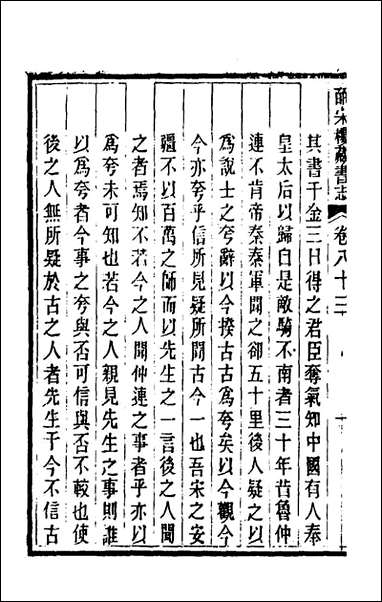 皕宋樓藏書志 卷八十三 十
其書于金三日得之君臣奪氣知中國有人奉
皇太后以歸自是敵騎不南者三十年昔魯仲
連不肯帝秦秦軍聞之卻五十里後人疑之以
爲說士之夸辭以今揆古古爲夸矣以今觀今
今亦夸乎信所見疑所聞古今一也吾宋之安
疆不以百萬之師而以先生之一言後之人聞
之者焉知不若今之人聞仲連之事者乎亦以
爲夸未可知也若今之人親見先生之事則誰
以爲夸者今事之夸與否可信與否不較也使
後之人無所疑於古之人者先生于今不信古